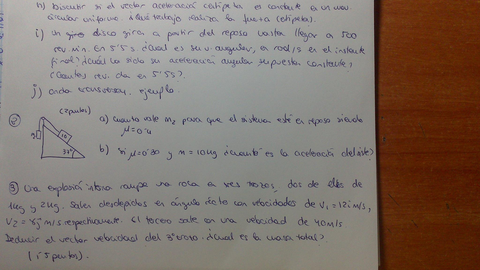 h) Discutir si el vector aceleración centrípeta es constante en un mov.
circular uniforme. ¿Qué trabajo realiza la fuerza centrípeta?
i) un disco gira a partir del reposo hasta llegar a 500
rev/min. en 5'5s. ¿cual es su v. angular, en rad/s en el instante
final? ¿cuál ha sido su aceleración angular, supuesta constante?
¿Cuántas rev. da en 5'5s?
j) onda transversal. ejemplo.
(2 puntos)
a) cuanto vale m2 para que el sistema esté en reposo siendo
μ=0'4
b) si μ=0'20 y m=10kg ¿cuánto es la aceleración del sist?
10
37°
3) Una explosión interna rompe una roca en tres trozos, dos de ellos de
1kg y 2kg. Salen despedidos en ángulo recto con velocidades de V1=12i m/s,
V2=8j m/s respectivamente. El tercero sale con una velocidad de 40m/s
Deducir el vector velocidad del 3º trozo. ¿cual es la masa total?
(1'5 puntos)